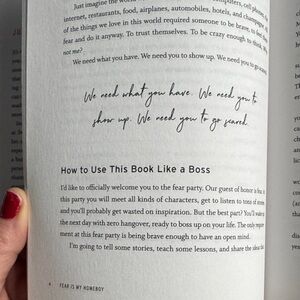 Just imagine the world
internet, restaurants, food, airplanes, automobiles, hotels, and champagne
of the things we love in this world required someone to be brave, to feel
fear and do it anyway. To trust themselves. To be crazy enough to think, Why
not me?
We need what you have. We need you to show up. We need you to go scared.
We need what you have. We need you to
show up. We need you to go scared.
How to Use This Book Like a Boss
I'd like to officially welcome you to the fear party. Our guest of honor is fear.
this party you will meet all kinds of characters, get to listen to tons of
and you'll probably get wasted on inspiration. But the best part? You'll wake
the next day with zero hangover, ready to boss up on your life. The only require
ment at this fear party is being brave enough to have an open mind.
I'm going to tell some stories, teach some lessons, and share the ideas
FEAR IS MY HOMEBOY